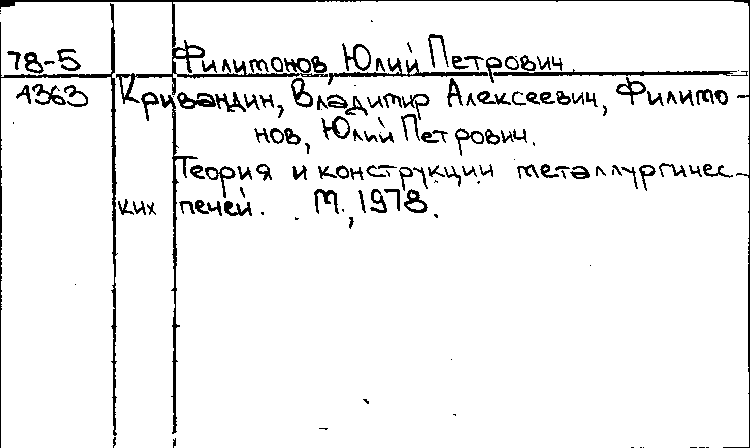 78-5 Филимонов, Юлий Петрович.
4363 Кривандин, Владимир Алексеевич, Филимо-
нов, Юлий Петрович.
Теория и конструкции металлургичес-
ких печей. М., 1978.